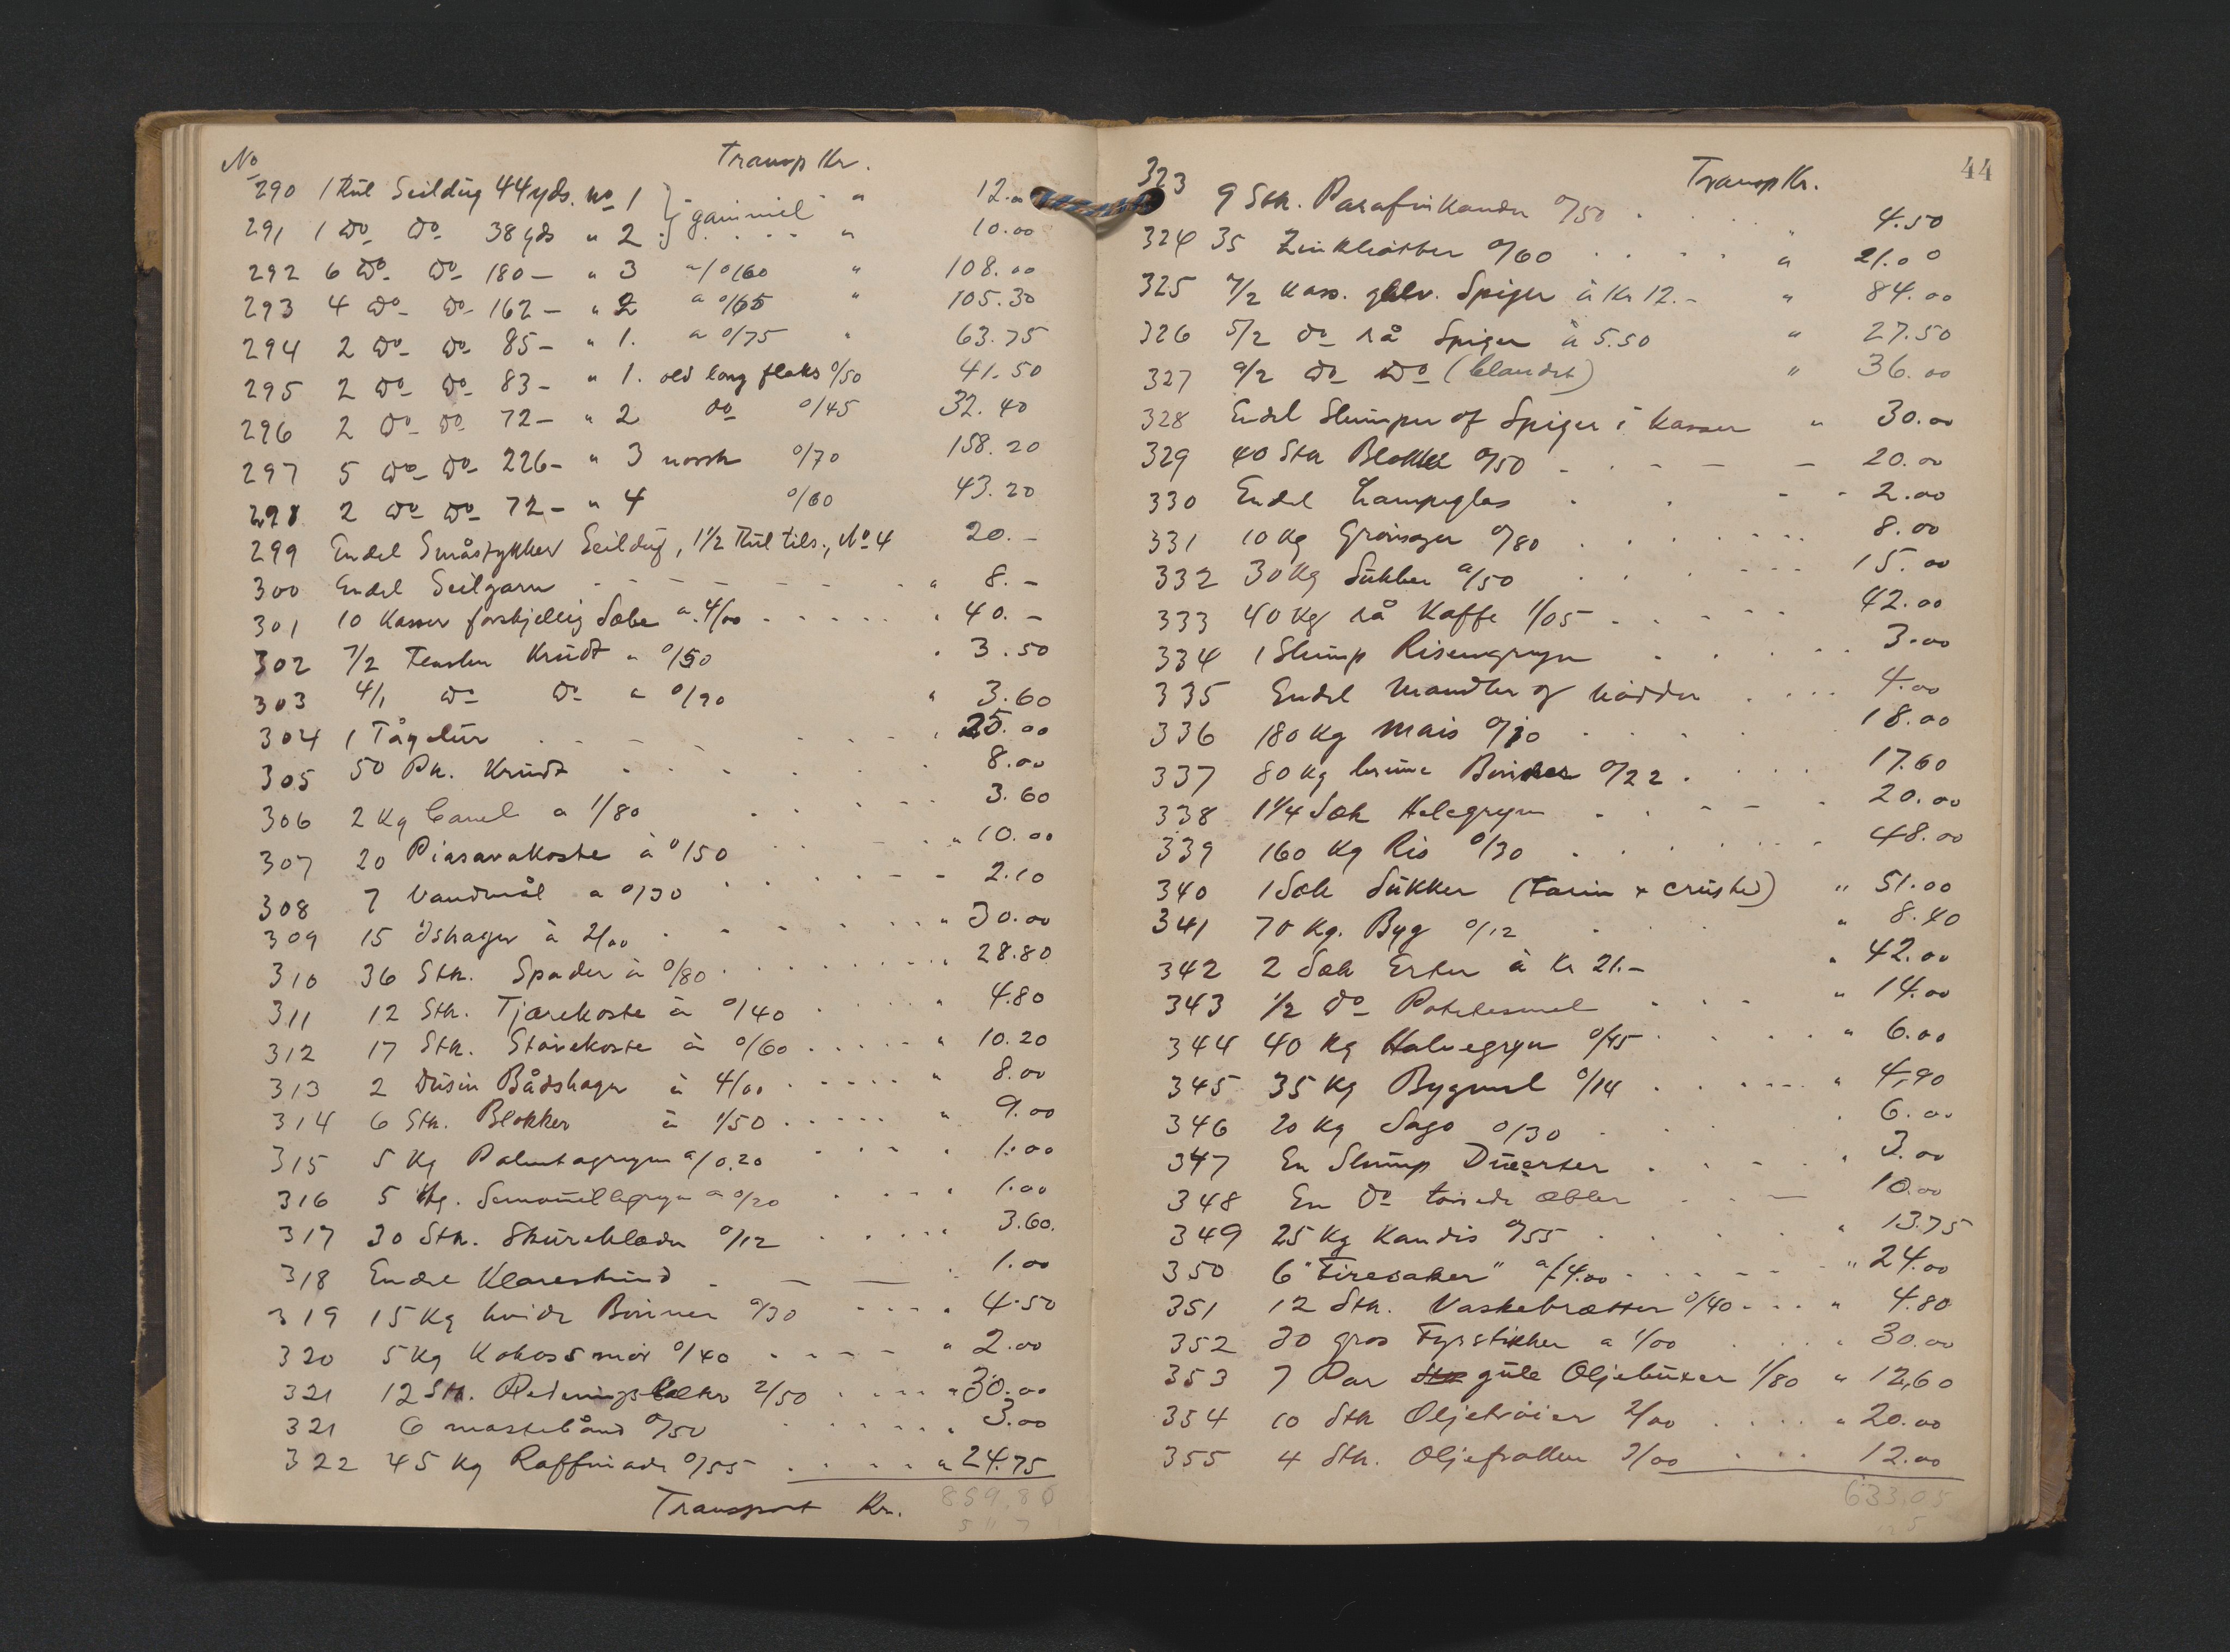 No Transp Kr.
290 1 Rul Seildug 44 yds. No 1 } gammel " 12.00
291 1 Do Do 38 yds " 2 } " 10.00
292 6 Do Do 180 - " 3 a 0/60 " 108.00
293 4 Do Do 162 - " 2 a 0/65 " 105.30
294 2 Do Do 85 - " 1. a 0/75 " 63.75
295 2 Do Do 83 - " 1. old long flaks 0/50 41.50
296 2 Do Do 72 - " 2 do 0/45 32.40
297 5 Do Do 226 - " 3 norsk 0/70 158.20
298 2 Do Do 72 - " 4 0/60 43.20
299 Endel Småstykker Seildug, 1 1/2 Rul tils., No 4 20.-
300 Endel Seilgarn " 8.-
301 10 Kasser forskjellig Sæbe a 4/00 " 40.-
302 7/2 Tender Krudt a 0/50 " 3.50
303 4/1 Do Do a 0/90 " 3.60
304 1 Tågelur " 25.00
305 50 Pk. Krudt 8.00
306 2 Kg Canel a 1/80 3.60
307 20 Piasavakoste à 0/50 " 10.00
308 7 Vandmål a 0/30 2.10
309 15 Øshager à 2/00 " 30.00
310 36 Stk. Spader à 0/80 " 28.80
311 12 Stk. Tjærekoste à 0/40 " 4.80
312 17 Stk. Støvekoste à 0/60 " 10.20
313 2 Dusin Bådshager à 4/00 " 8.00
314 6 Stk. Blokker à 1/50 " 9.00
315 5 Kg Palmtagryn a/0.20 " 1.00
316 5 Kg. Semouillegryn a 0/20 " 1.00
317 30 Stk. Skureklæder 0/12 " 3.60.
318 Endel Klareskind 1.00
319 15 Kg hvide Bönner 0/30 " 4.50
320 5 Kg Kokossmör 0/40 " 2.00
321 12 Stk. Redningsbelter 2/50 " 30.00
321 6 mastebånd 0/50 " 3.00
322 45 Kg Raffinade 0/55 " 24.75
Transport Kr. 859.80
44
Transp Kr.
323 9 Stk. Parafinkander 0/50 " 4.50
324 35 Zinkbøtter 0/60 " 21.00
325 7/2 Kass. galv. Spiger à Kr 12.- " 84.00
326 5/2 do rå Spiger à 5.50 " 27.50
327 9/2 Do Do (blandet) " 36.00
328 Endel Slumper af Spiger i Kasser " 30.00
329 40 Stk Blokke 0/50 20.00
330 Endel Lampeglas 2.00
331 10 Kg Grönsager 0/80 8.00
332 30 Kg Sukker 0/50 15.00
333 40 Kg rå Kaffe 1/05 42.00
334 1 Slump Risengryn 3.00
335 Endel Mandler og nödder 4.00
336 180 Kg mais 0/10 18.00
337 80 Kg brune Bönner 0/22 17.60
338 1 1/4 Sæk Helegryn 20.00
339 160 Kg Ris 0/30 48.00
340 1 Sæk Sukker (Farin + crushed) " 51.00
341 70 Kg. Byg 0/12 " 8.40
342 2 Sæk Erter à Kr 21.- " 42.00
343 1/2 Do Potetesmel " 14.00
344 40 Kg Halvegryn 0/15 " 6.00
345 35 Kg Bygmel 0/14 " 4,90
346 20 Kg Sago 0/30 " 6.00
347 En Slump Dueerter " 3.00
348 En Do törrede æbler 10.00
349 25 Kg Kandis 0/55 " 13.75
350 6 "Firesaker" a/4.00 " 24.00
351 12 Stk. Vaskebrætter 0/40 " 4.80
352 30 gros Fyrstikker a 1/00 " 30.00
353 7 Par gule Oljebuxer 1/80 " 12,60
354 10 Stk Oljetröier 2/00 " 20.00
355 4 Stk. Oljefrakker 3/00 12.00
633.05